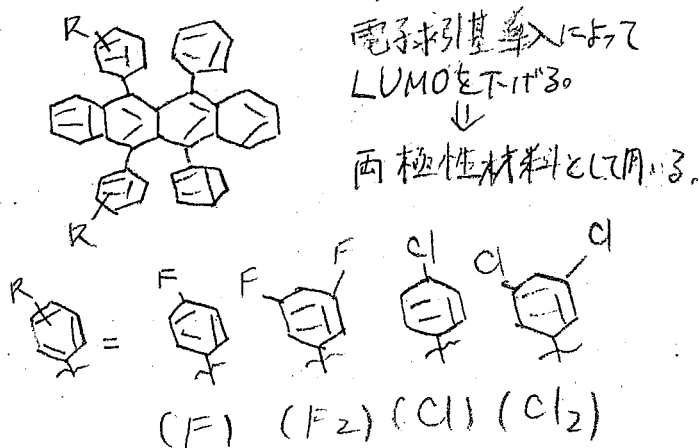 R
電子求引基導入によって
LUMOを下げる。
⇓
両極性材料として用いる。
R
R
=
F
F
F
Cl
Cl
Cl
(F) (F2) (Cl) (Cl2)